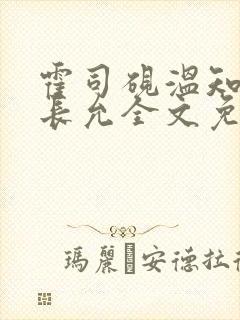 霍司砚温知
长允全文免
瑪麗 安德拉